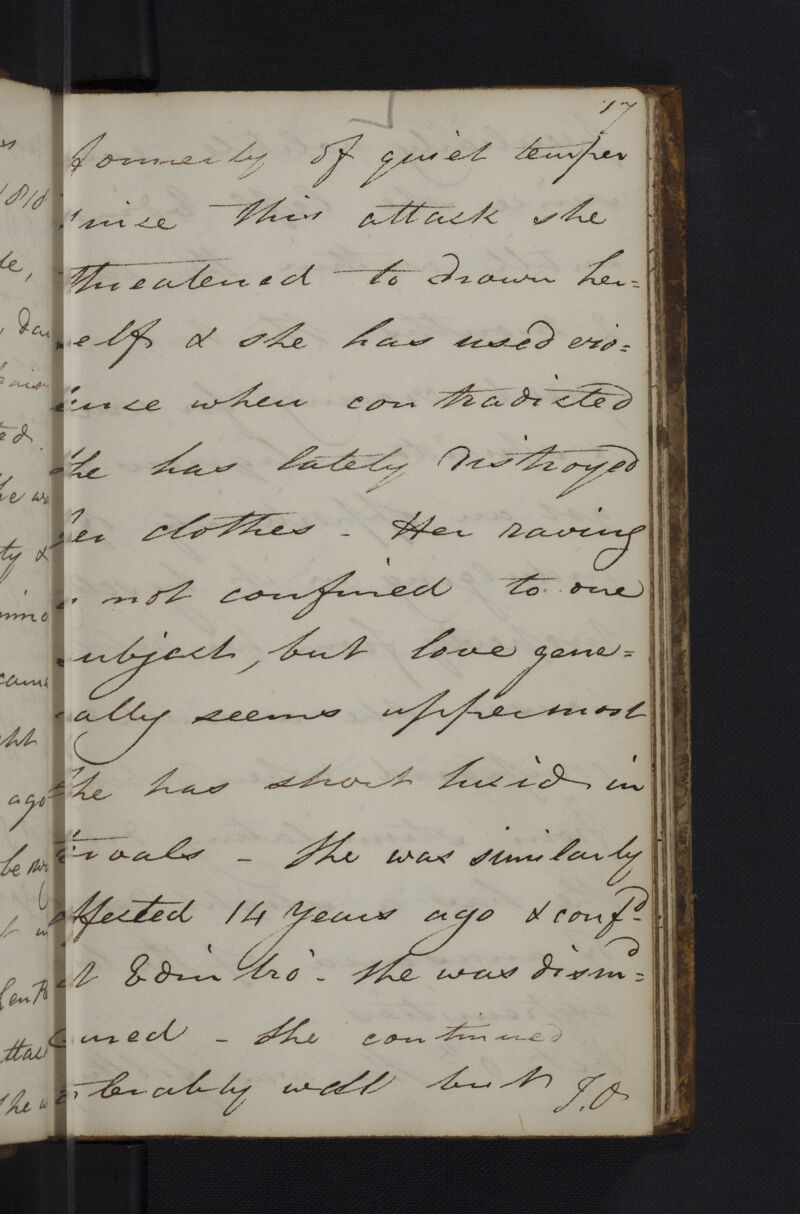 17
formerly of quiet temper
since this attack she
threatened to drown her=
self & she has used vio=
lence when contradicted
She has lately distroyed
her clothes - Her raving
is not confined to one
subject, but love gene=
rally seems uppermost
She has short lucid in
tervals - She was similarly
affected 14 years ago & confd-
at Edinbro - She was dismd=
cured - She continued
tolerably well but T.O